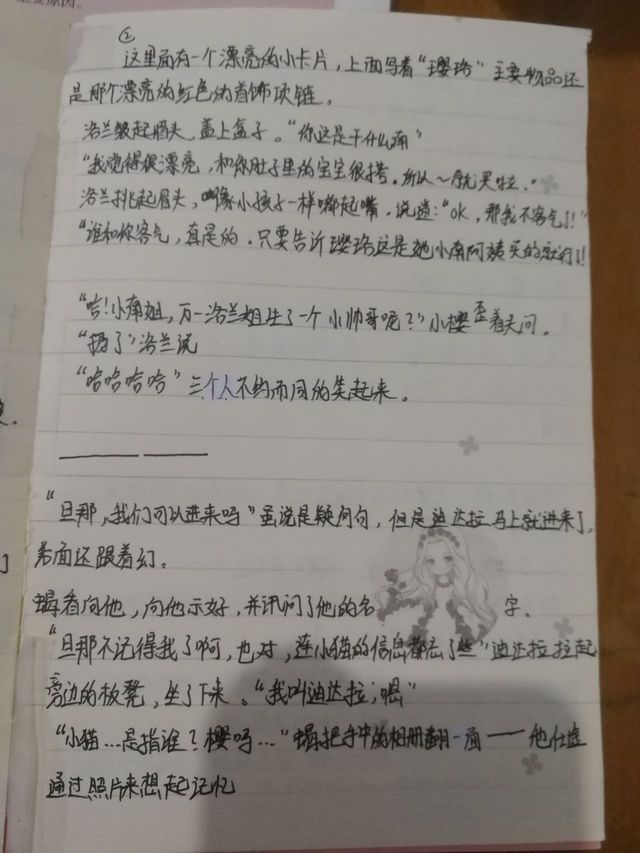 ②
这里面有一个漂亮的小卡片，上面写着“璎珞”主要物品还
是那个漂亮的红色的首饰项链。
洛兰皱起眉头，盖上盒子。“你这是干什么南”
“我觉得很漂亮，和你肚子里的宝宝很搭。所以～就买啦。”
洛兰挑起眉头，像小孩子一样嘟起嘴，说道：“OK，那我不客气了！”
“谁和你客气，真是的。只要告诉璎珞这是她小南阿姨买的就行了！
“哈！小南姐，万一洛兰姐生了一个小帅哥呢？”小樱歪着头问。
“扔了”洛兰说
“哈哈哈哈”三个人不约而同的笑起来。
“旦那，我们可以进来吗”虽说是疑问句，但是迪达拉马上就进来了，
后面还跟着幻。
蝎看向他，向他示好，并询问了他的名字.
“旦那不记得我了啊，也对，连小猫的信息都忘了些”迪达拉拉起
旁边的板凳，坐了下来。“我叫迪达拉；嗯”
“小猫...是指谁？樱吗...”蝎把手中的相册翻一页——他在
通过照片来想起记忆